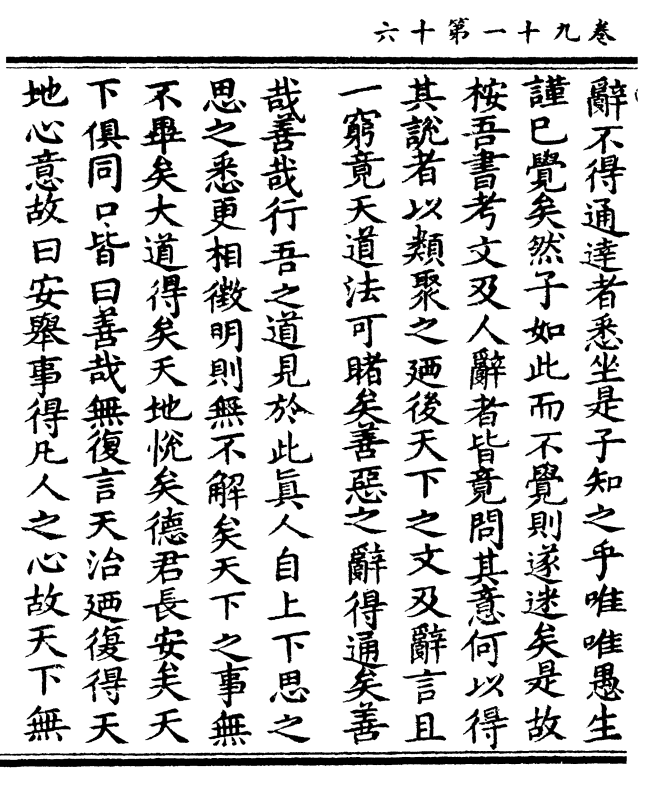 卷九十一第十六
辭不得通達者悉坐是子知之乎唯唯愚生
謹已覺矣然子如此而不覺則遂迷矣是故
桉吾書考文及人辭者皆竟問其意何以得
其說者以類聚之廼後天下之文及辭言且
一窮竟天道法可睹矣善惡之辭得通矣善
哉善哉行吾之道見於此真人自上下思之
思之悉更相徵明則無不解矣天下之事無
不畢矣大道得矣天地悅矣德君長安矣天
下俱同口皆曰善哉無復言天治廼復得天
地心意故曰安舉事得凡人之心故天下無